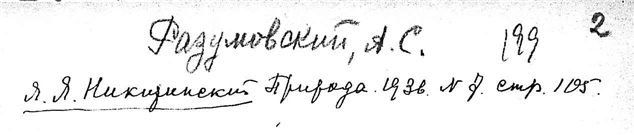 Разумовский, А.С. 199 2
Я. Я. Никитинский Природа. 1936. N 7. стр. 105.